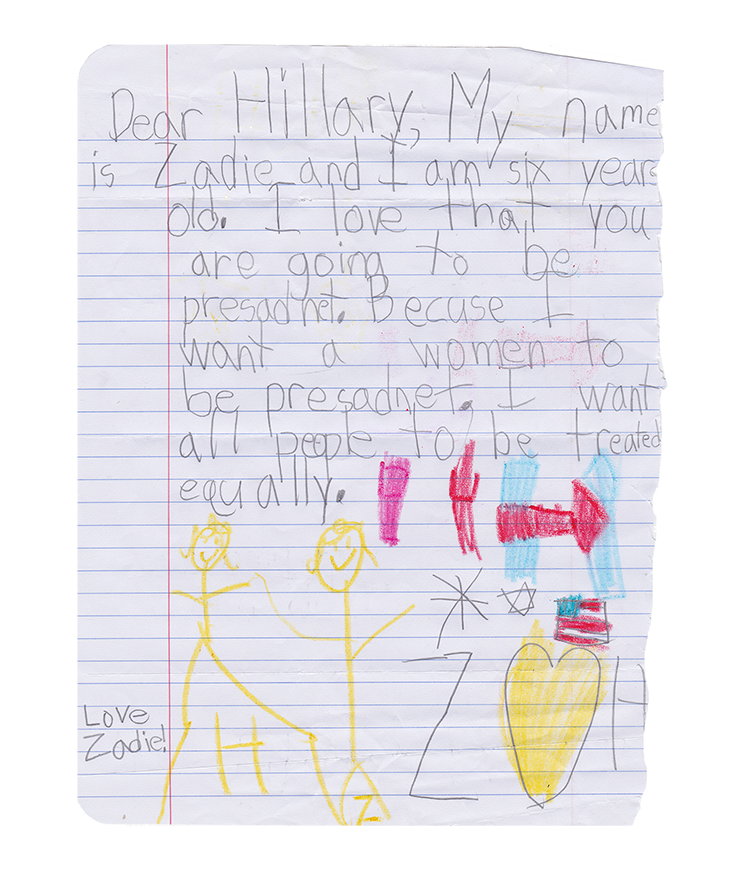 Dear Hillary, My name
is Zadie and I am six years
old. I love that you
are going to be
presadnet. Becuse I
want a women to
be presadnet. I want
all people to be treated
equally.
H
Z
Z H
Love
Zadie!